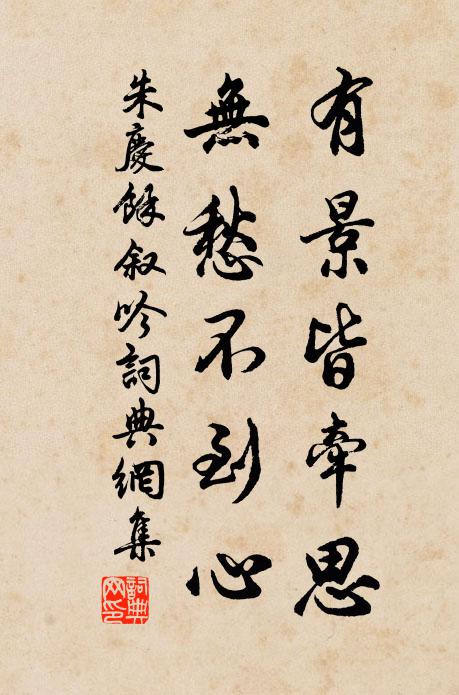 有景皆牽思
無愁不到心
朱慶餘叙吟詞典網集
詞典网印